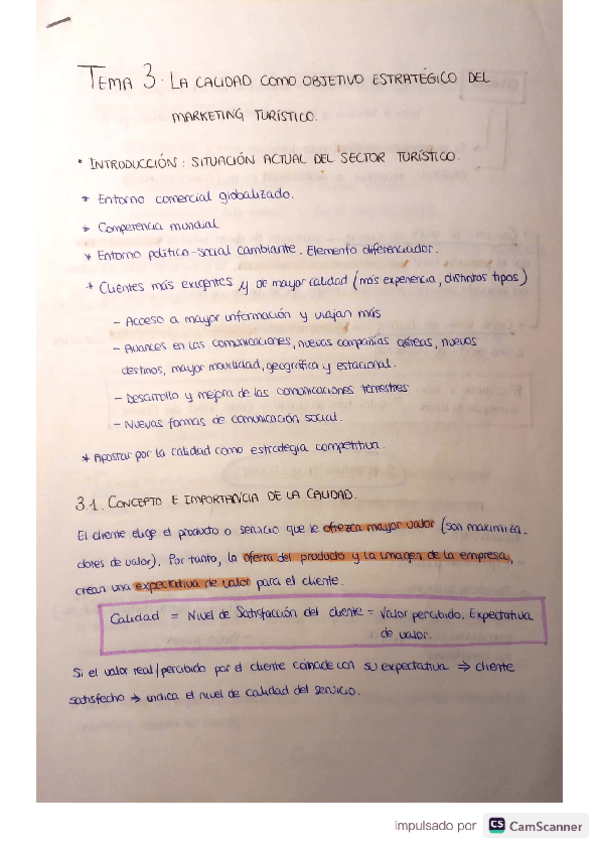 TEMA 3. LA CALIDAD COMO OBJETIVO ESTRATÉGICO DEL
MARKETING TURÍSTICO.
* INTRODUCCIÓN: SITUACIÓN ACTUAL DEL SECTOR TURÍSTICO.
* Entorno comercial globalizado.
* Competencia mundial
* Entorno político-social cambiante. Elemento diferenciador.
* Clientes más exigentes y de mayor calidad (más experiencia, distintos tipos)
- Acceso a mayor información y viajan más
- Avances en las comunicaciones, nuevas compañías aéreas, nuevos
destinos, mayor movilidad, geográfica y estacional.
- Desarrollo y mejora de las comunicaciones terrestres
- Nuevas formas de comunicación social.
* Apostar por la calidad como estrategia competitiva.
3.1. CONCEPTO E IMPORTANCIA DE LA CALIDAD.
El cliente elige el producto o servicio que le ofrezca mayor valor (son maximiza-
dores de valor). Por tanto, la oferta del producto y la imagen de la empresa,
crean una expectativa de valor para el cliente.
Calidad = Nivel de Satisfacción del cliente = Valor percibido. Expectativa
de valor.
Si el valor real/percibido por el cliente coincide con su expectativa ⇒ cliente
satisfecho → indica el nivel de calidad del servicio.
impulsado por CS CamScanner